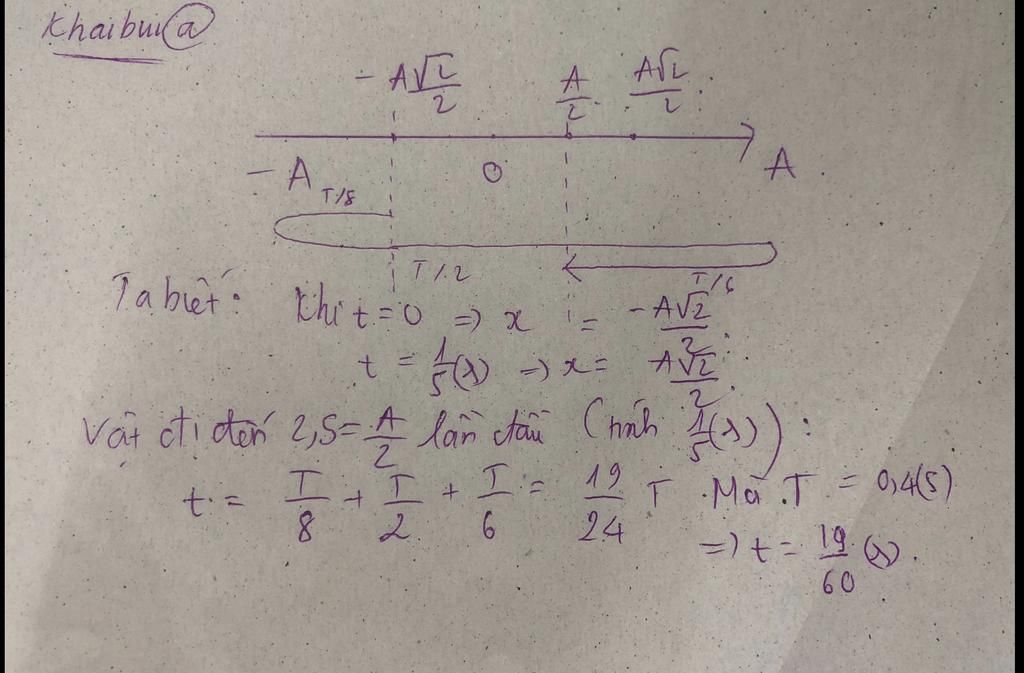 Khaibui@
-A√2/2 A/2 A√2/2
-A O A
T/8
T/2 T/6
Ta biết: Khi t=0 => x = -A√2/2
t = 1/5(s) => x = A√2/2
Vật đi đến 2,5=A/2 lần đầu (tính 1/5(s)):
t = T/8 + T/2 + T/6 = 19/24 T. Mà T = 0,4(s)
=> t = 19/60 (s).